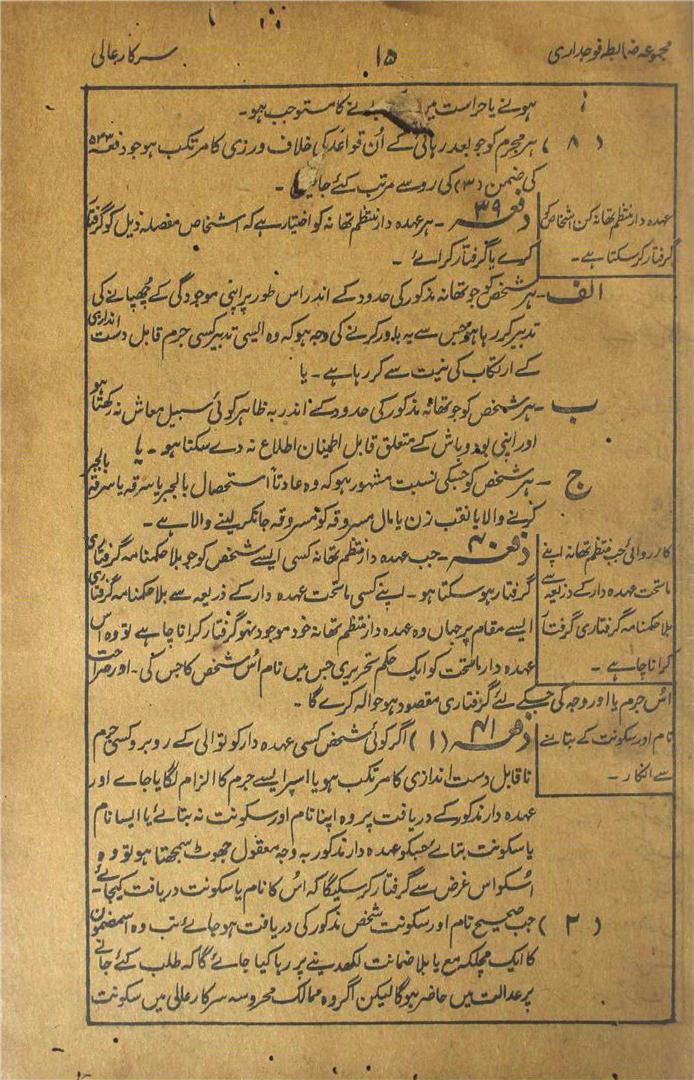 مجموعہ ضابطہ فوجداری
۱۵
سرکار عالی
ہونے یا حراست میں کا مستوجب ہو۔
(۸) ہر مجرم کو جو بعد رہائی کے اُن قواعد کی خلاف ورزی کا مرتکب ہو جو دفعہ ۵۳۳
کی ضمن (۳) کی رو سے مرتب کئے جائیں۔
عہدہ دار منتظم تھانہ کن اشخاص کو
گرفتار کر سکتا ہے۔
دفعہ ۳۹۔ ہر عہدہ دار منتظم تھانہ کو اختیار ہے کہ اشخاص مفصلہ ذیل کو گرفتار
کرے یا گرفتار کرائے۔
الف۔ ہر شخص کو جو تھانہ مذکور کی حدود کے اندر اس طور پر اپنی موجودگی کے چھپانے کی
تدبیر کر رہا ہو جس سے یہ باور کرنے کی وجہ ہو کہ وہ ایسی تدبیر کسی جرم قابل دست اندازی
کے ارتکاب کی نیت سے کر رہا ہے۔ یا
ب۔ ہر شخص کو جو تھانہ مذکور کی حدود کے اندر بہ ظاہر کوئی سبیل معاش نہ رکھتا ہو
اور اپنی بود و باش کے متعلق قابل اطمینان اطلاع نہ دے سکتا ہو۔ یا
ج۔ ہر شخص کو جسکی نسبت مشہور ہو کہ وہ عادتاً استحصال بالجبر یا سرقہ یا سرقہ بالجبر
کرنے والا یا نقب زن یا مال مسروقہ کو مسروقہ جانکر لینے والا ہے۔
کارروائی جب منتظم تھانہ اپنے
ماتحت عہدہ دار کے ذریعہ سے
بلا حکمنامہ گرفتاری گرفتار
کرانا چاہے۔
دفعہ ۴۰۔ جب عہدہ دار منتظم تھانہ کسی ایسے شخص کو جو بلا حکمنامہ گرفتاری
گرفتار ہو سکتا ہو۔ اپنے کسی ماتحت عہدہ دار کے ذریعہ سے بلا حکمنامہ گرفتاری
ایسے مقام پر جہاں وہ عہدہ دار منتظم تھانہ خود موجود نہو گرفتار کرانا چاہے تو وہ اُس
عہدہ دار ماتحت کو ایک حکم تحریری جس میں نام اُس شخص کا جس کی۔ اور صراحت
اُس جرم یا اور وجہ کی جسکے لئے گرفتاری مقصود ہو حوالہ کرے گا۔
نام اور سکونت کے بتانے
سے انکار۔
دفعہ ۴۱ (۱) اگر کوئی شخص کسی عہدہ دار کوتوالی کے روبرو کسی جرم
ناقابل دست اندازی کا مرتکب ہو یا اسپر ایسے جرم کا الزام لگایا جاے اور
عہدہ دار مذکور کے دریافت پر وہ اپنا نام اور سکونت نہ بتائے یا ایسا نام
یا سکونت بتائے جسکو عہدہ دار مذکور بہ وجہ معقول جھوٹ سمجھتا ہو تو وہ
اُسکو اس غرض سے گرفتار کر سکیگا کہ اُس کا نام یا سکونت دریافت کیجائے۔
(۲) جب صحیح نام اور سکونت شخص مذکور کی دریافت ہو جائے تب وہ اسمضمون
کا ایک مچلکہ مع یا بلا ضمانت لکھدینے پر رہا کیا جائے گا کہ طلب کئے جانے
پر عدالت میں حاضر ہو گا لیکن اگر وہ ممالک محروسہ سرکار عالی میں سکونت